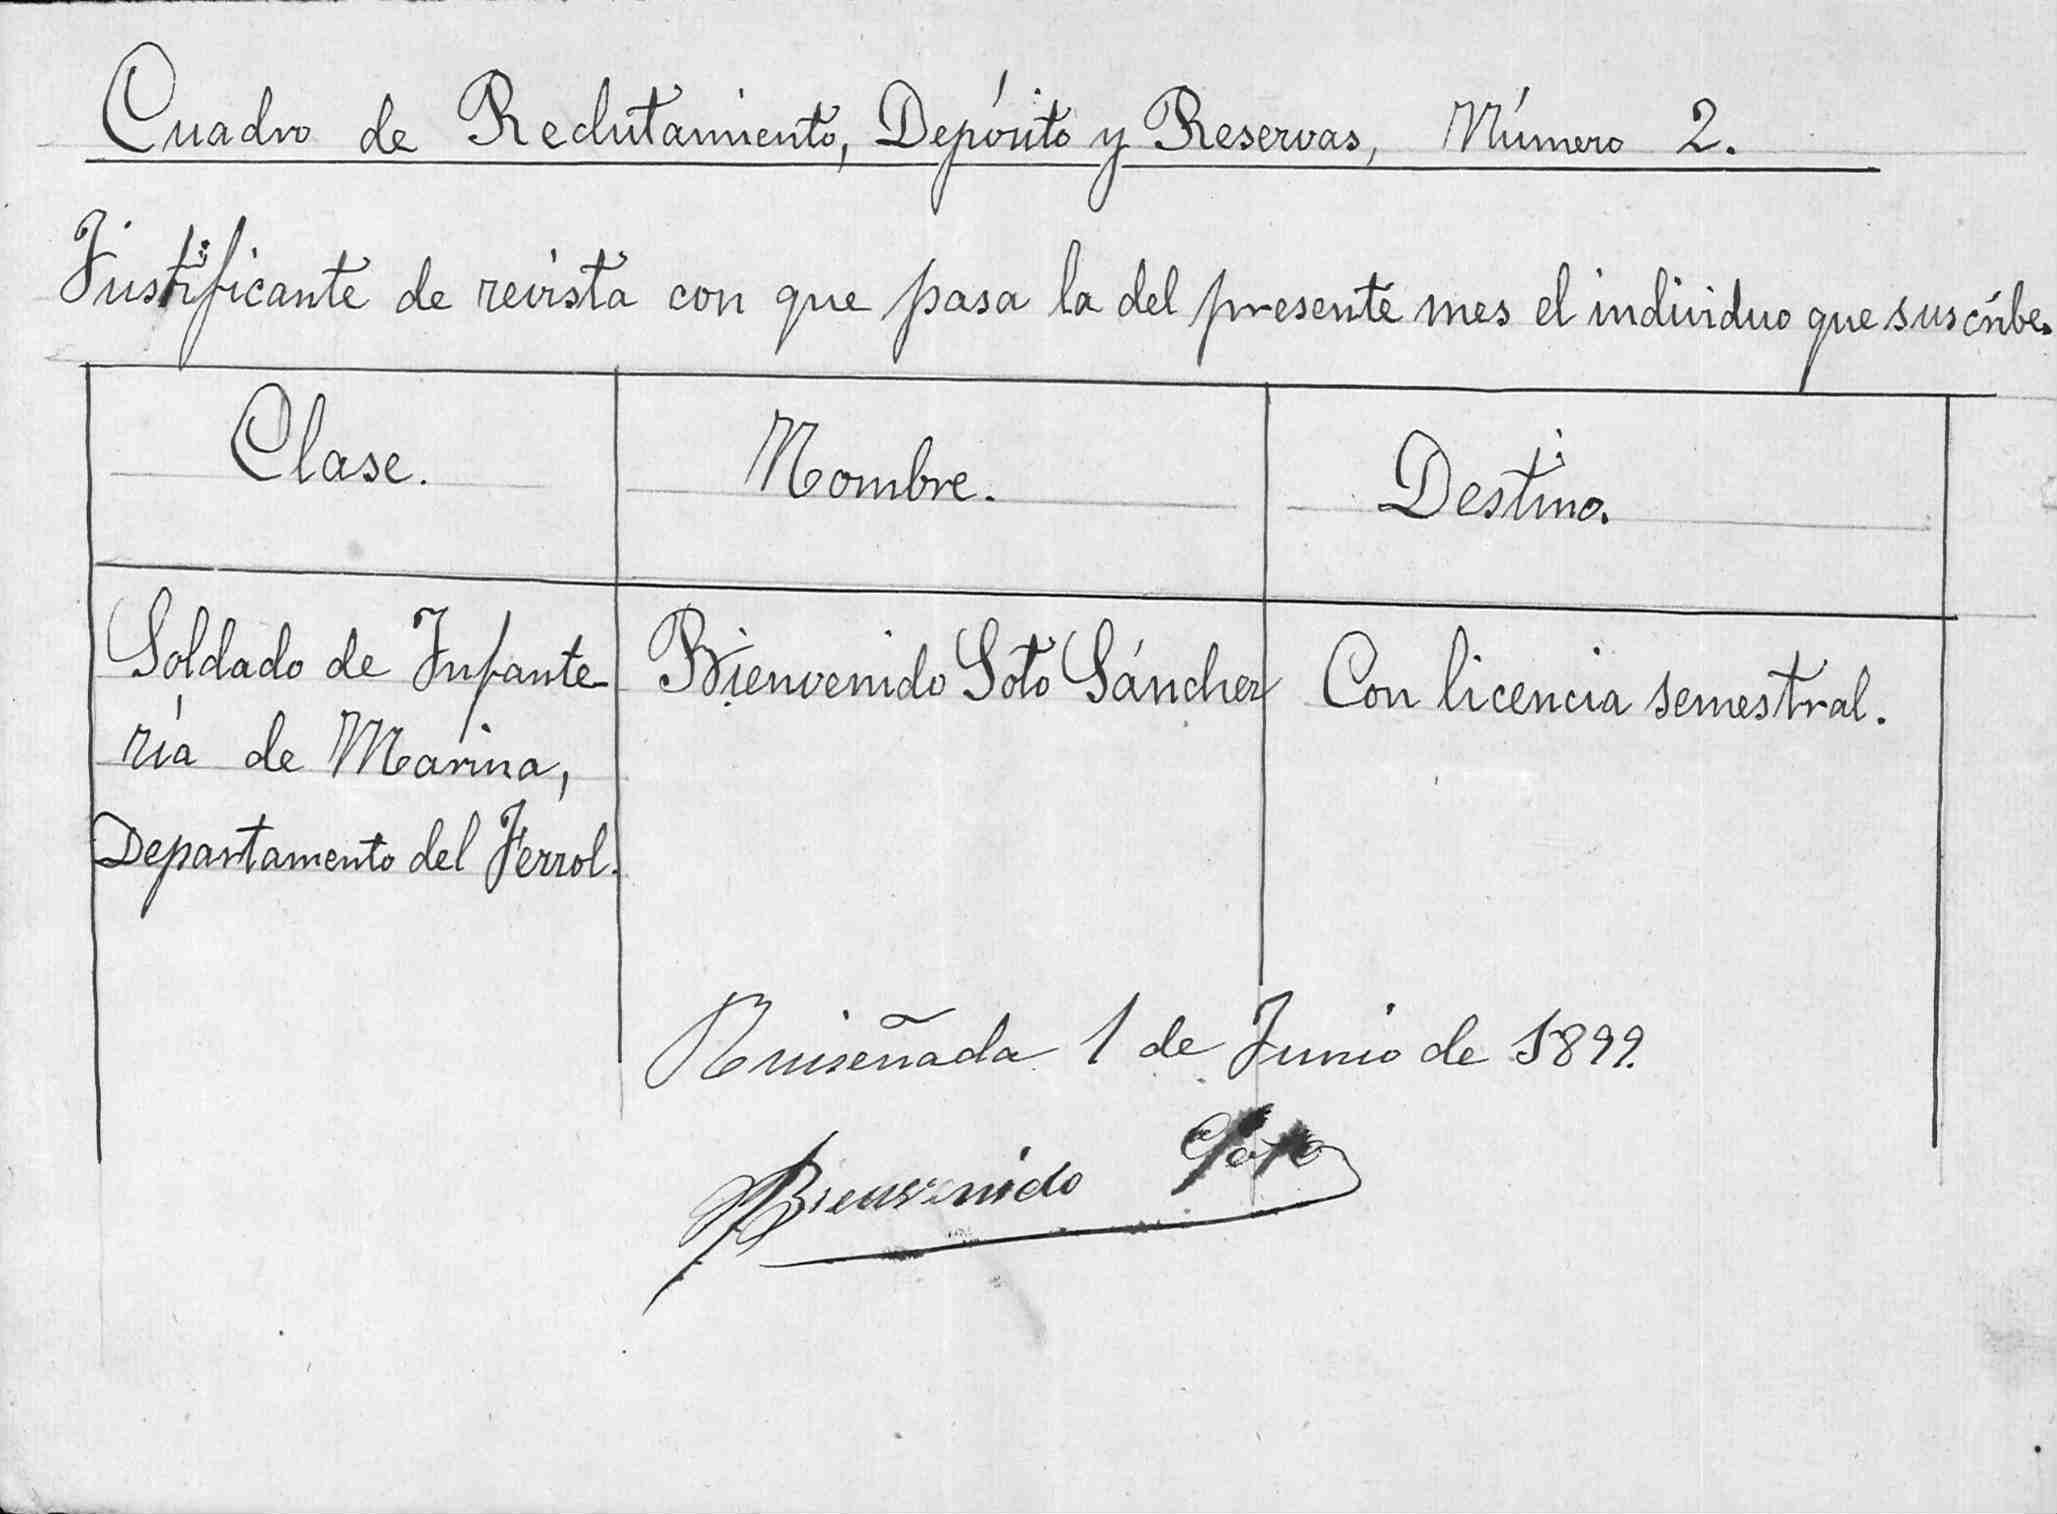 Cuadro de Reclutamiento, Depósito y Reservas, Número 2.
Justificante de revista con que pasa la del presente mes el individuo que suscribe.
Clase.
Nombre.
Destino.
Soldado de Infante-
ría de Marina,
Departamento del Ferrol.
Bienvenido Soto Sánchez
Con licencia semestral.
Ruiseñada 1 de Junio de 1899.
Bienvenido Soto